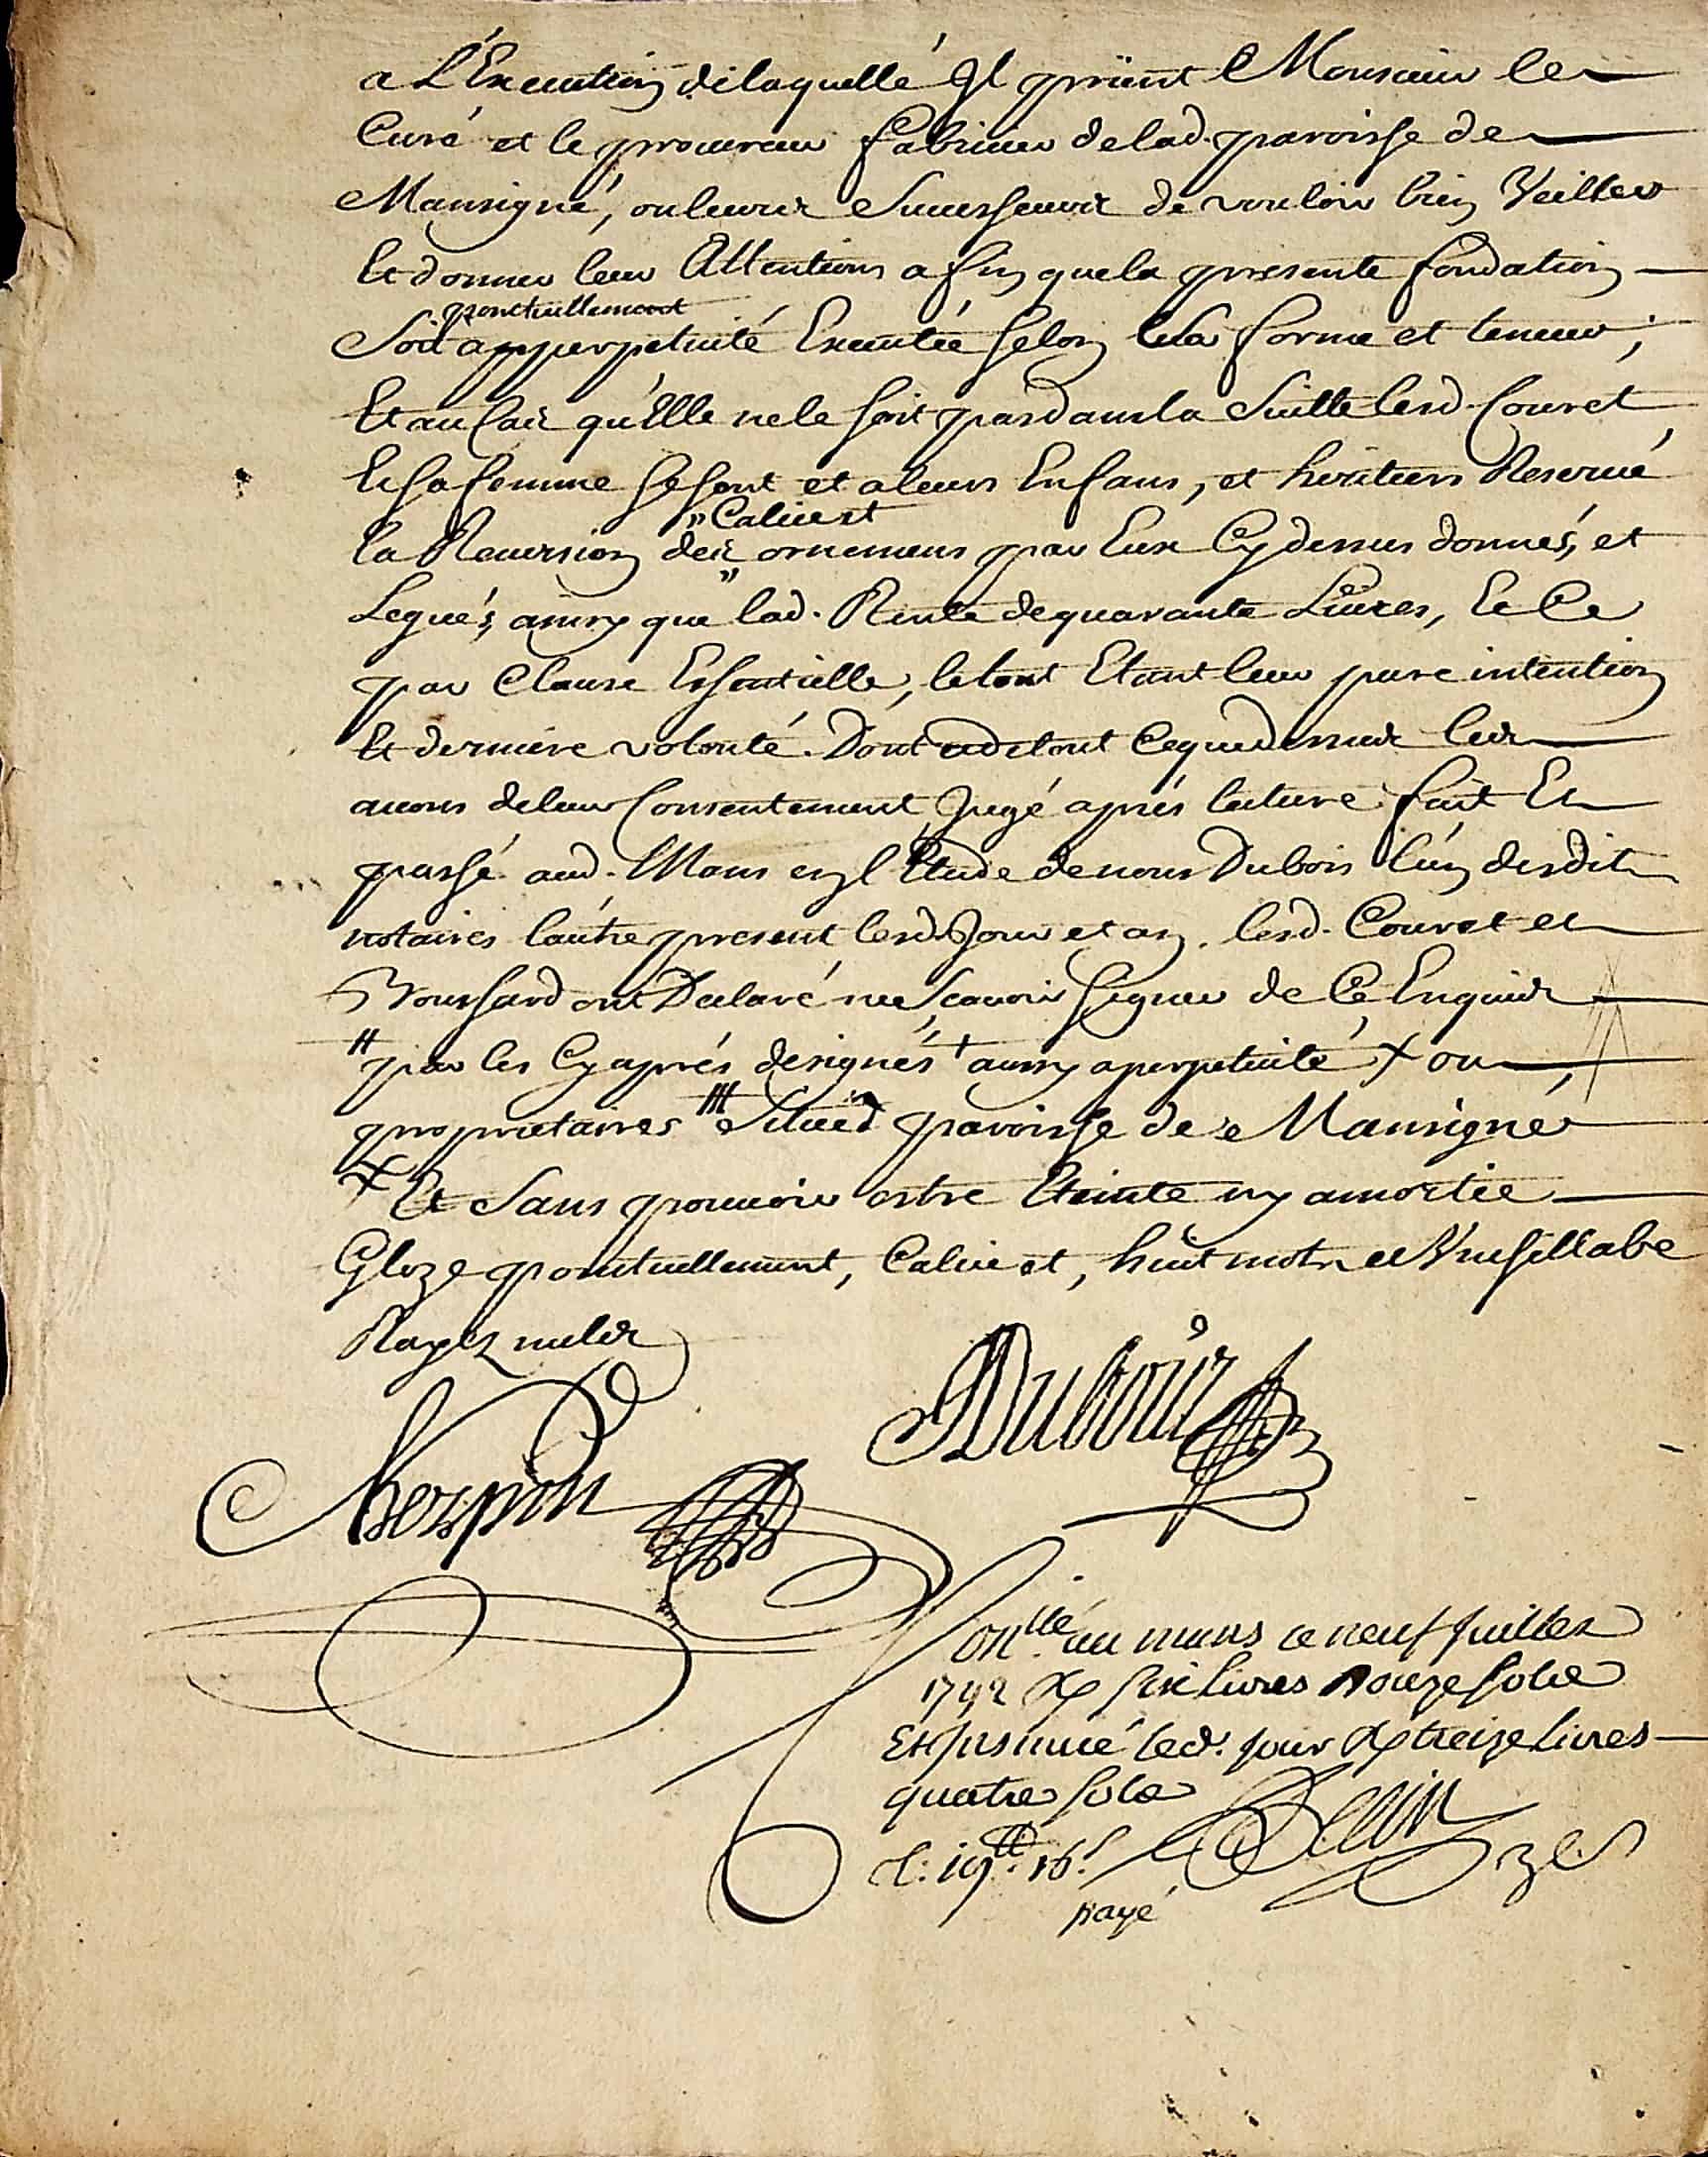 a L'Execution de laquelle Il prient Monsieur le
Curé et le procureur fabricier de lad. paroisse de
Mansigné, ou leurs Successeurs de vouloir bien Veiller
Et donner leur Attentions afin que la presente fondation
ponctuellement
Soit apperpetuité Executée selon sa forme et teneur;
Et au cas qu'Elle ne le soit pas dans la Suitte lesd. Couret
Et sa femme se sont et a leurs Enfans, et heritiers Reservé
"Calice et
la Reversion des ornemens par Eux Cy dessus donnés, et
Legués, ainsy que lad. Rente de quarante Livres, Et Ce
par Clause Essentielle, le tout Etant leur pure intention
Et derniere volonté. Dont et de tout Ce que dessus les
avons de leur Consentement Jugé aprés lecture fait Et
passé aud. Mans en l'Etude de nous Dubois l'un desdits
notaires l'autre present, lesd. Jour et an. lesd. Couret et
Broussard ont Declaré ne Scavoir signer de Ce Enquis
# par les Cy aprés designés + aussy a perpetuité + ou
proprietaires # Situés paroisse de Mansigné
+ Et Sans pouvoir estre Eteinte ny amortie
Gloze ponctuellement, Calice et, huit mots et Une sillabe
Rayez nuls
Dubois
Chorpion
Con.llé au mans ce neuf juillet
1742 R. six livres douze sols
Et insinué led. jour R. treize livres
quatre sols
T: 19.tt 16.s
payé